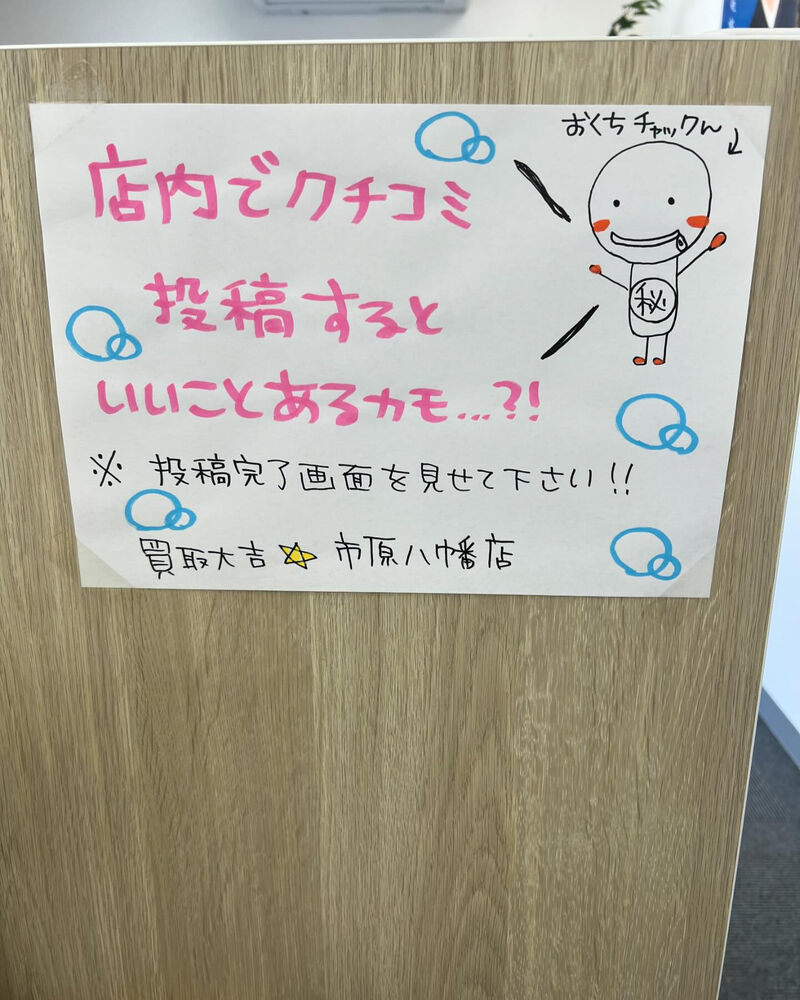 おくちチャックん↓
店内でクチコミ
投稿すると
いいことあるカモ...?!
※ 投稿完了画面を見せて下さい!!
買取大吉☆市原八幡店
秘